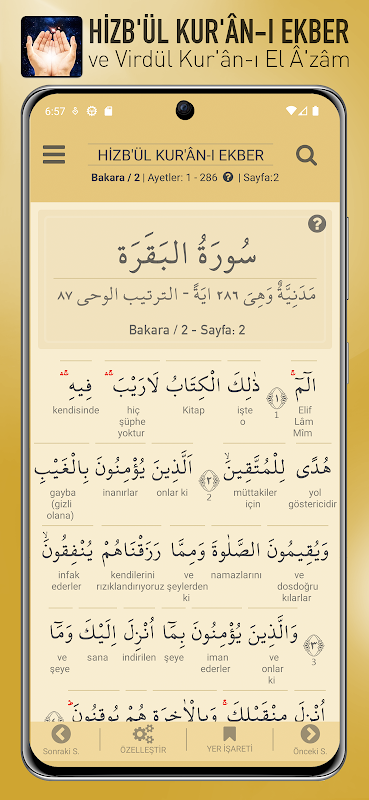 HİZB'ÜL KUR'ÂN-I EKBER
ve Virdül Kur'ân-ı El Â'zâm
6:57
HİZB'ÜL KUR'ÂN-I EKBER
Bakara / 2 | Ayetler: 1 - 286 ? | Sayfa:2
?
سُورَةُ الْبَقَرَة
مَدَنِيَّةٌ وَهِىَ ٢٨٦ ايَةً - الترتيب الوحى ٨٧
Bakara / 2 - Sayfa: 2
الٓمٓ ﴿١﴾ ذٰلِكَ الْكِتَابُ لَارَيْبَ فِيهِ
Elif Lâm Mîm 1 işte o Kitap hiç şüphe yoktur kendisinde
هُدًى لِلْمُتَّقِينَ ﴿٢﴾ اَلَّذِينَ يُؤْمِنُونَ بِالْغَيْبِ
yol göstericidir müttakiler için 2 onlar ki inanırlar gayba (gizli olana)
وَيُقِيمُونَ الصَّلٰوةَ وَمِمَّا رَزَقْنَاهُمْ يُنْفِقُونَ
ve dosdoğru kılarlar namazlarını ve şeylerden ki kendilerini rızıklandırıyoruz infak ederler
﴿٣﴾ وَالَّذِينَ يُؤْمِنُونَ بِمَٓا اُنْزِلَ اِلَيْكَ وَمَٓا
3 ve onlar ki iman ederler şeye indirilen sana ve şeye
اُنْزِلَ مِنْقَبْلِكَ وَبِالْاٰخِرَةِ هُمْ يُوقِنُونَ
Sonraki S. ÖZELLEŞTİR YER İŞARETİ Önceki S.